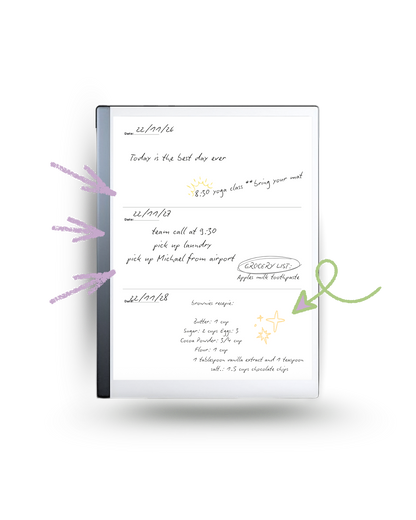 Date: 22/11/26
Today is the best day ever
8:30 yoga class **bring your mat
Date: 22/11/27
team call at 9:30
pick up laundry
pick up Michael from airport
GROCERY LIST:
Apples milk toothpaste
Date: 22/11/28
Brownies recepie:
Butter: 1 cup
Sugar: 2 cups Eggs: 3
Cocoa Powder: 3/4 cup
Flour: 1 cup
1 tablespoon vanilla extract and 1 teaspoon
salt.: 1.5 cups chocolate chips